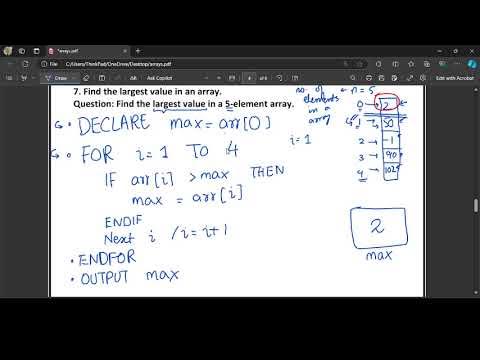 *arrays.pdf
File C:/Users/ThinkPad/OneDrive/Desktop/arrays.pdf
Draw
Ask Copilot
Edit with Acrobat
7. Find the largest value in an array.
Question: Find the largest value in a 5-element array.
no. of elements in a array
n = 5
0 → 2
1 → 50
2 → -1
3 → 90
4 → 102
DECLARE max = arr[0]
FOR i = 1 TO 4
i = 1
IF arr[i] > max THEN
max = arr[i]
ENDIF
Next i / i = i+1
ENDFOR
OUTPUT max
2
max